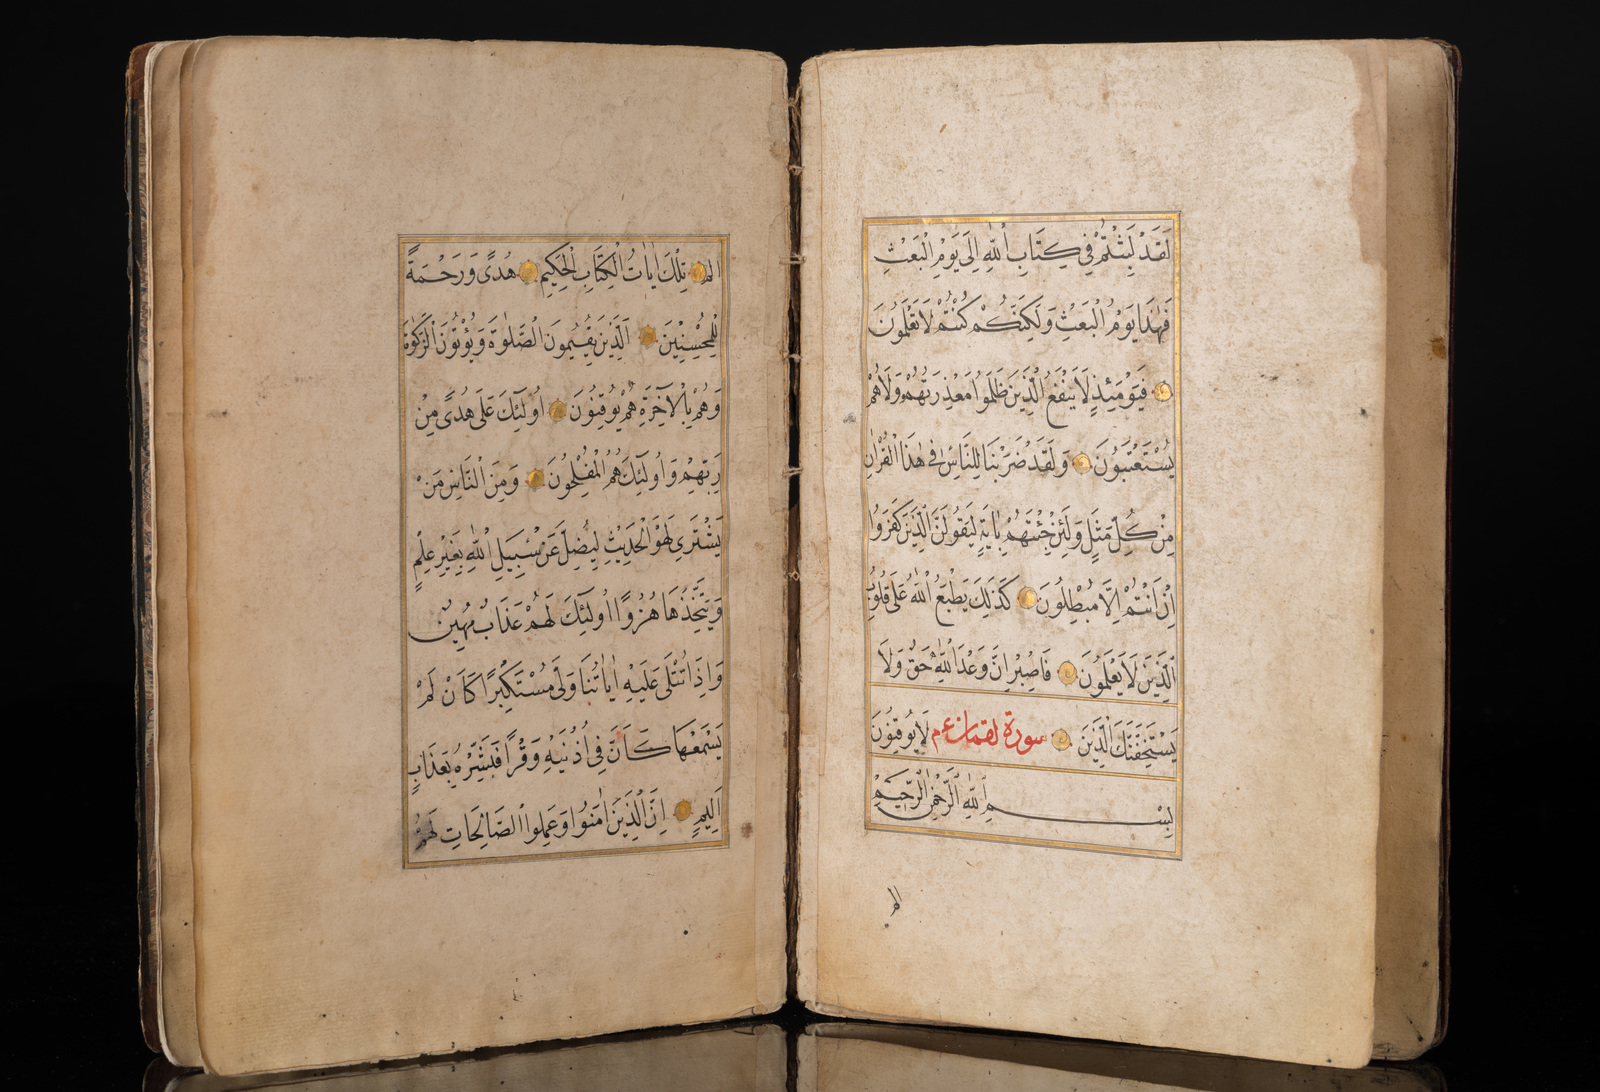 لَقَدْ لَبِثْتُمْ فِي كِتَابِ اللّٰهِ اِلَى يَوْمِ الْبَعْثِ
فَهٰذَا يَوْمُ الْبَعْثِ وَلَكِنَّكُمْ كُنْتُمْ لَا تَعْلَمُونَ
فَيَوْمَئِذٍ لَا يَنْفَعُ الَّذِينَ ظَلَمُوا مَعْذِرَتُهُمْ وَلَا هُمْ
يُسْتَعْتَبُونَ وَلَقَدْ ضَرَبْنَا لِلنَّاسِ فِي هٰذَا الْقُرْاٰنِ
مِنْ كُلِّ مَثَلٍ وَلَئِنْ جِئْتَهُمْ بِاٰيَةٍ لَيَقُولَنَّ الَّذِينَ كَفَرُوا
اِنْ اَنْتُمْ اِلَّا مُبْطِلُونَ كَذَلِكَ يَطْبَعُ اللّٰهُ عَلَى قُلُوبِ
الَّذِينَ لَا يَعْلَمُونَ فَاصْبِرْ اِنَّ وَعْدَ اللّٰهِ حَقٌّ وَلَا
يَسْتَخِفَّنَّكَ الَّذِينَ سورة لقمان عم لَا يُوقِنُونَ
بِسْمِ اللّٰهِ الرَّحْمٰنِ الرَّحِيمِ
الم
الم تِلْكَ اٰيَاتُ الْكِتَابِ الْحَكِيمِ هُدًى وَرَحْمَةً
لِلْمُحْسِنِينَ اَلَّذِينَ يُقِيمُونَ الصَّلٰوةَ وَيُؤْتُونَ الزَّكٰوةَ
وَهُمْ بِالْاٰخِرَةِ هُمْ يُوقِنُونَ اُولٰئِكَ عَلَى هُدًى مِنْ
رَبِّهِمْ وَاُولٰئِكَ هُمُ الْمُفْلِحُونَ وَمِنَ النَّاسِ مَنْ
يَشْتَرِي لَهْوَ الْحَدِيثِ لِيُضِلَّ عَنْ سَبِيلِ اللّٰهِ بِغَيْرِ عِلْمٍ
وَيَتَّخِذَهَا هُزُوًا اُولٰئِكَ لَهُمْ عَذَابٌ مُهِينٌ
وَاِذَا تُتْلَى عَلَيْهِ اٰيَاتُنَا وَلَّى مُسْتَكْبِرًا كَاَنْ لَمْ
يَسْمَعْهَا كَاَنَّ فِي اُذُنَيْهِ وَقْرًا فَبَشِّرْهُ بِعَذَابٍ
اَلِيمٍ اِنَّ الَّذِينَ اٰمَنُوا وَعَمِلُوا الصَّالِحَاتِ لَهُمْ